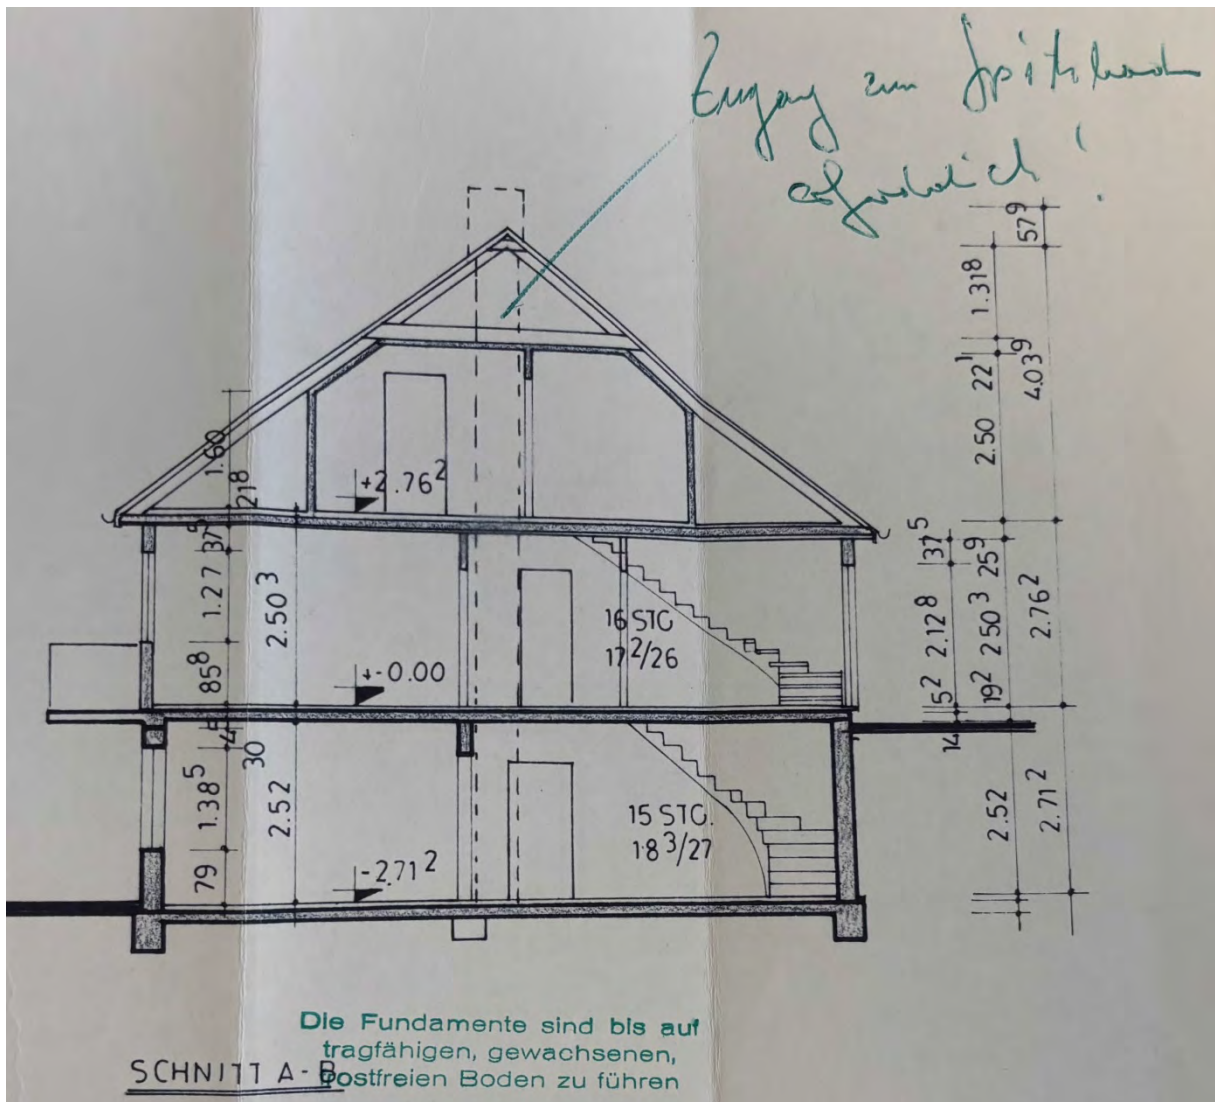 Zugang zum Spitzboden
erforderlich !
57⁹
1.31⁸
22¹
4.03⁹
2.50
1.60
21⁸
+2.76²
37⁵
1.27
2.50³
85⁸
+-0.00
16 STG
17²/26
37⁵
25⁹
2.12⁸
2 50³
2.76²
5²
19²
14
30
1.38⁵
2.52
79
-2.71²
15 STG.
18³/27
2.52
2.71²
Die Fundamente sind bis auf
tragfähigen, gewachsenen,
frostfreien Boden zu führen
SCHNITT A-B